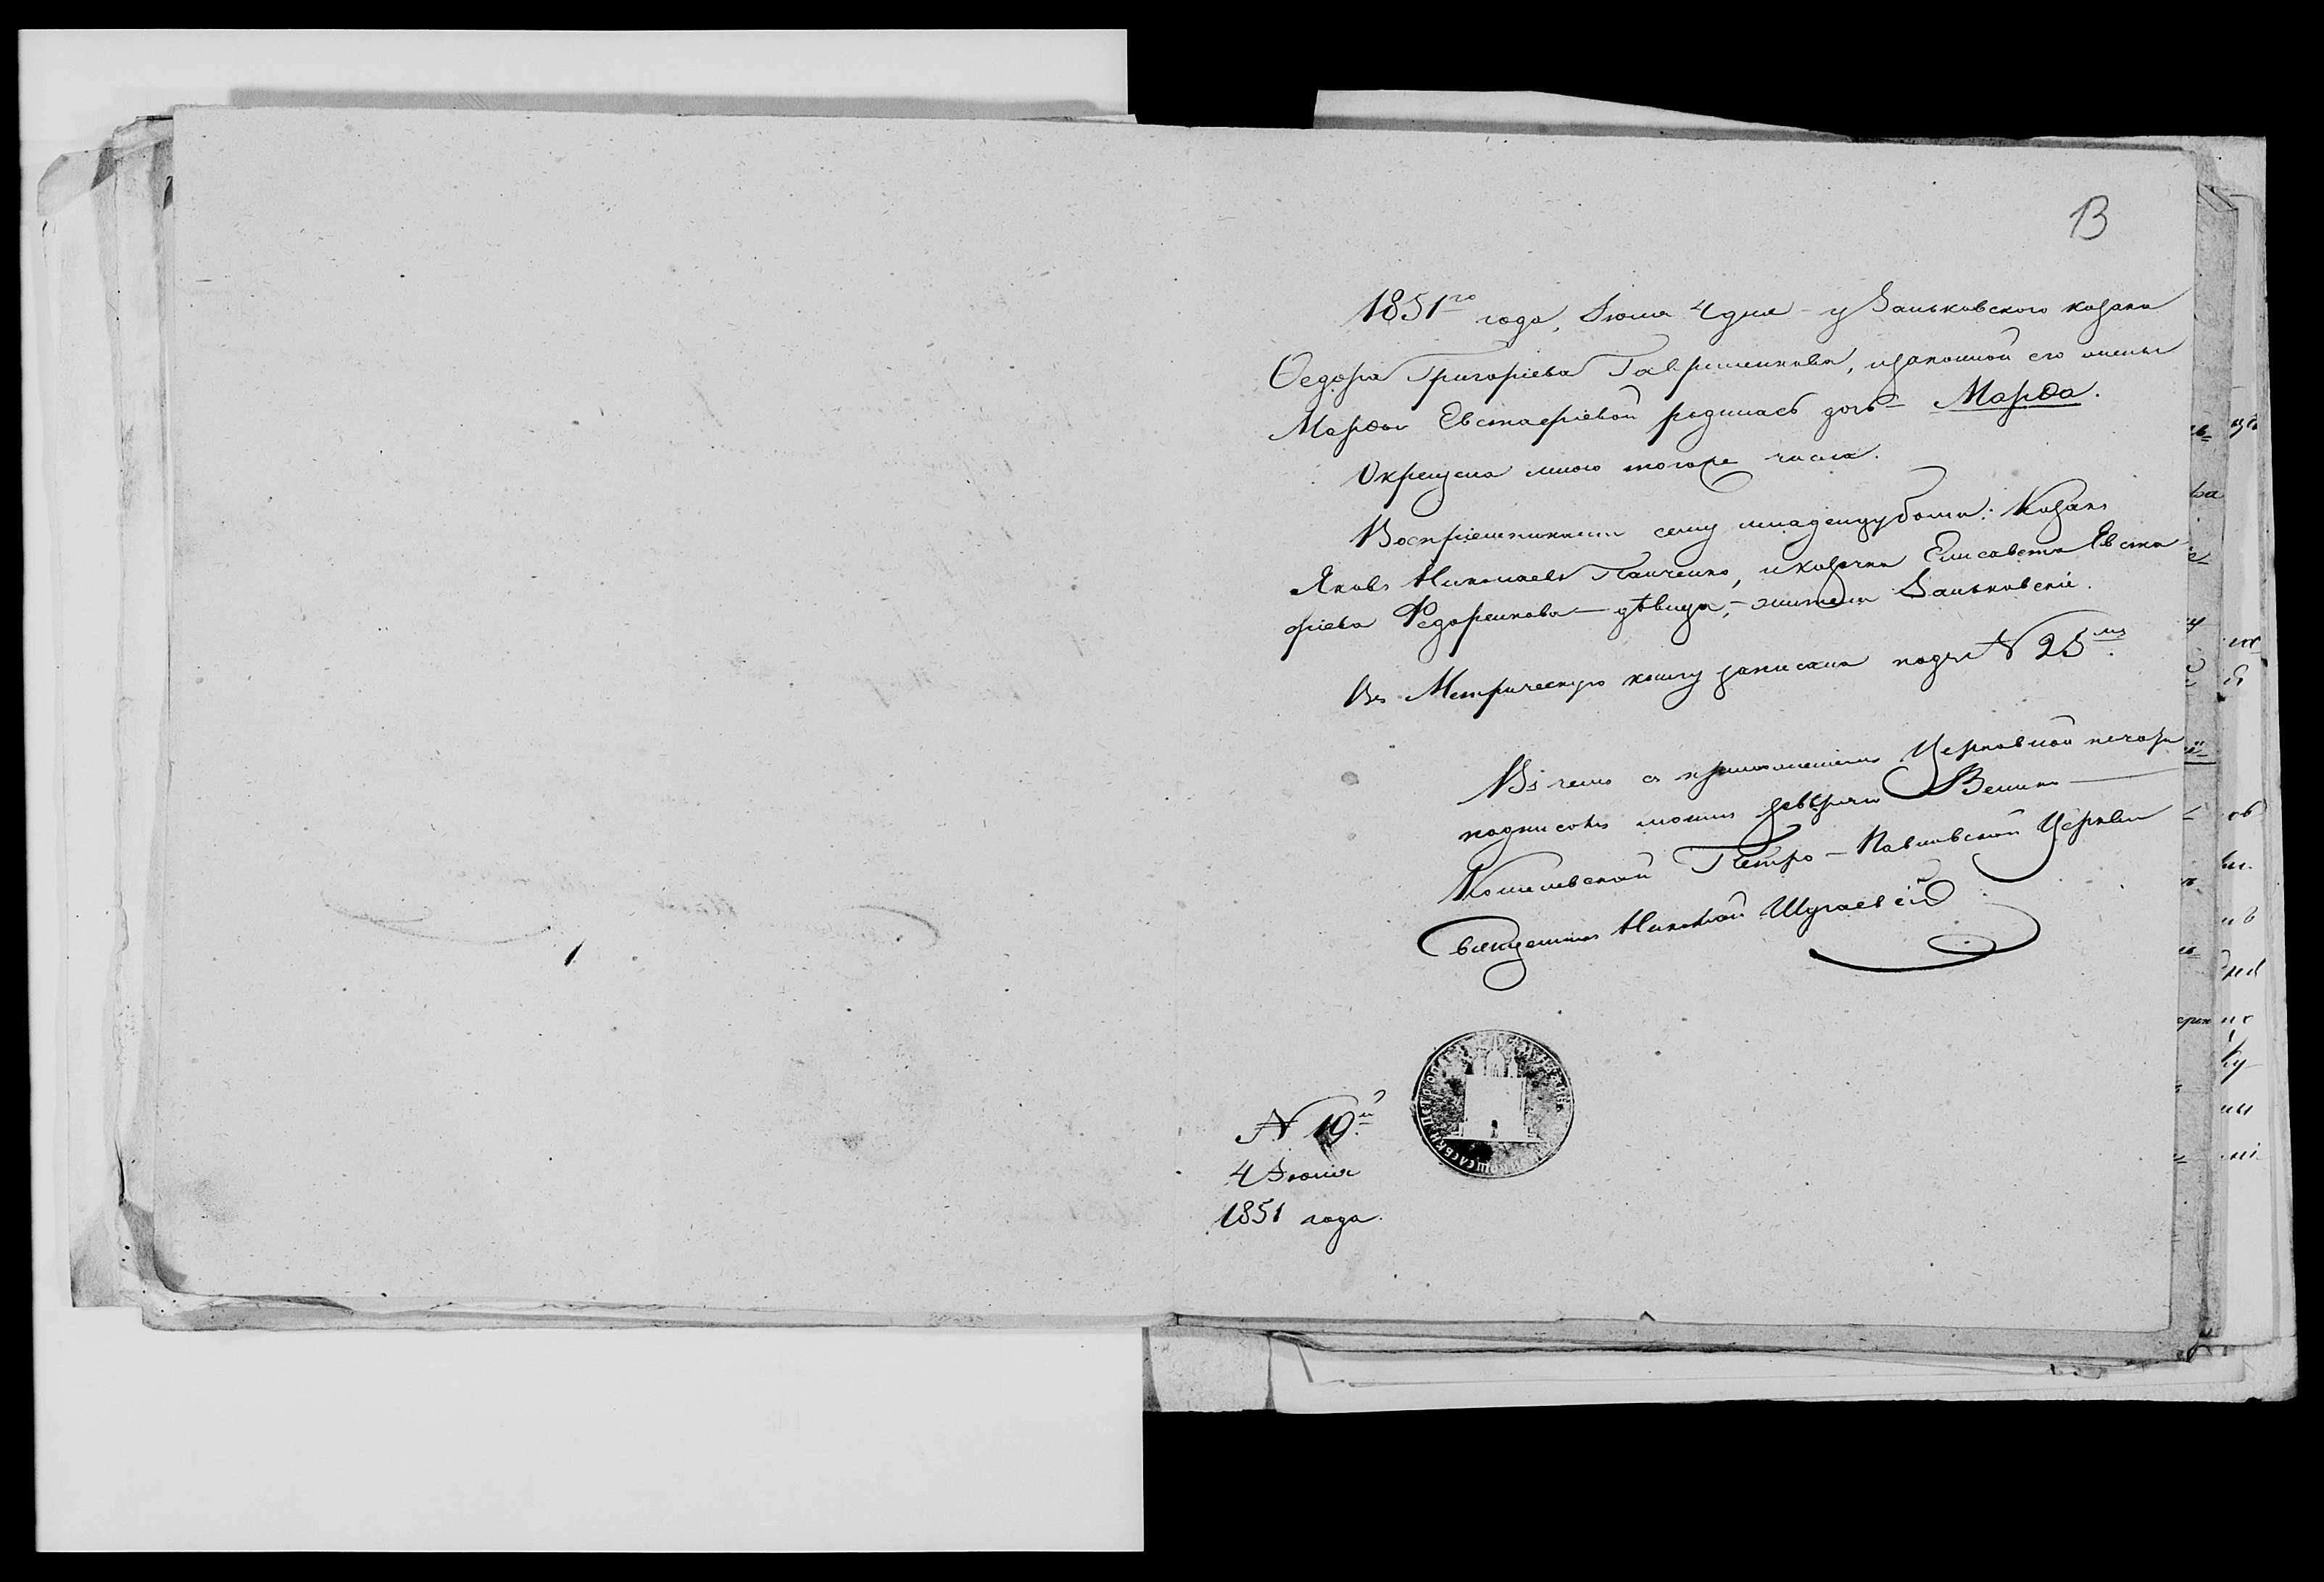 13
1851го года, Іюля 4 дня у Заньковского козака
Ѳедора Григоріева Гавришенкова, изаконной его жены
Марѳы Евстафіевой родилась дочь Марѳа.
Окрещена мною тогоже числа.
Воспріемниками сему младенцу были: Козакъ
Яковъ Николаевъ Панченко, и козачка Елисавета Евста
фіева Федоренкова - дѣвица, - жители Заньковскіе.
Въ Метрическую книгу записана подъ № 25мъ.
Въ чемъ съ приложеніемъ Церковной печати
подписомъ моимъ завѣряю Велико
Кошелевской Петро-Павловской Церкви
Священникъ Николай
№ 19й
4 Іюля
1851 года.